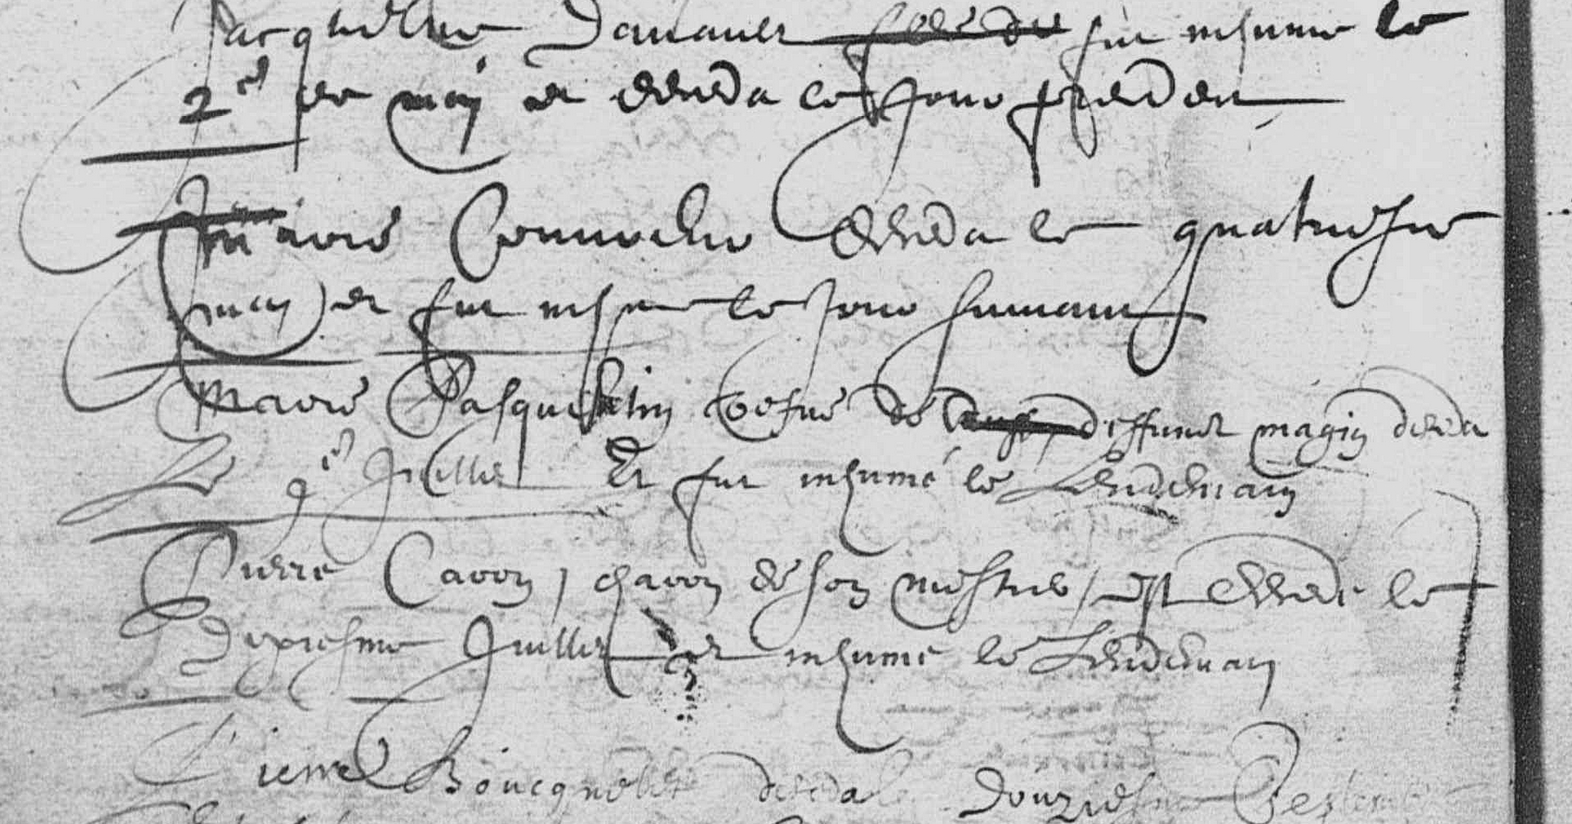 Jacqueline Danauer fut inhume le
2e de may et deceda le jour precedent
Marie deceda le quatriesme
may et fut inhume le jour suivant
Marie Pasque vefue de deffunct magin deceda
Le 9e Juillet Et fut inhumé le Lendemain
Pierre Caron charon de son mestier est decede le
dixiesme Juillet et inhume le Lendemain
Pierre Boucquelet deceda le douziesme Septemb